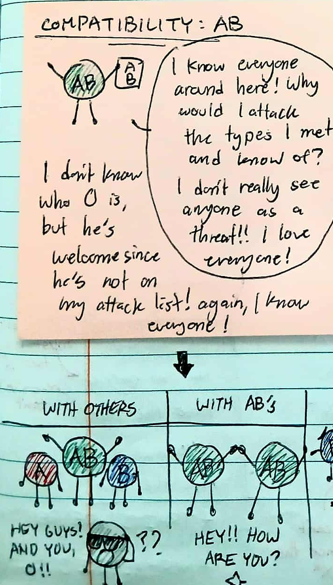 COMPATIBILITY: AB
AB
A
B
I know everyone
around here! Why
would I attack
the types I met
and know of?
I don't really see
anyone as a
threat!! I love
everyone!
I don't know
who O is,
but he's
welcome since
he's not on
my attack list! again, I know
everyone!
WITH OTHERS
WITH AB's
A
AB
B
AB
AB
HEY GUYS!
AND YOU,
O!!
??
HEY!! HOW
ARE YOU?